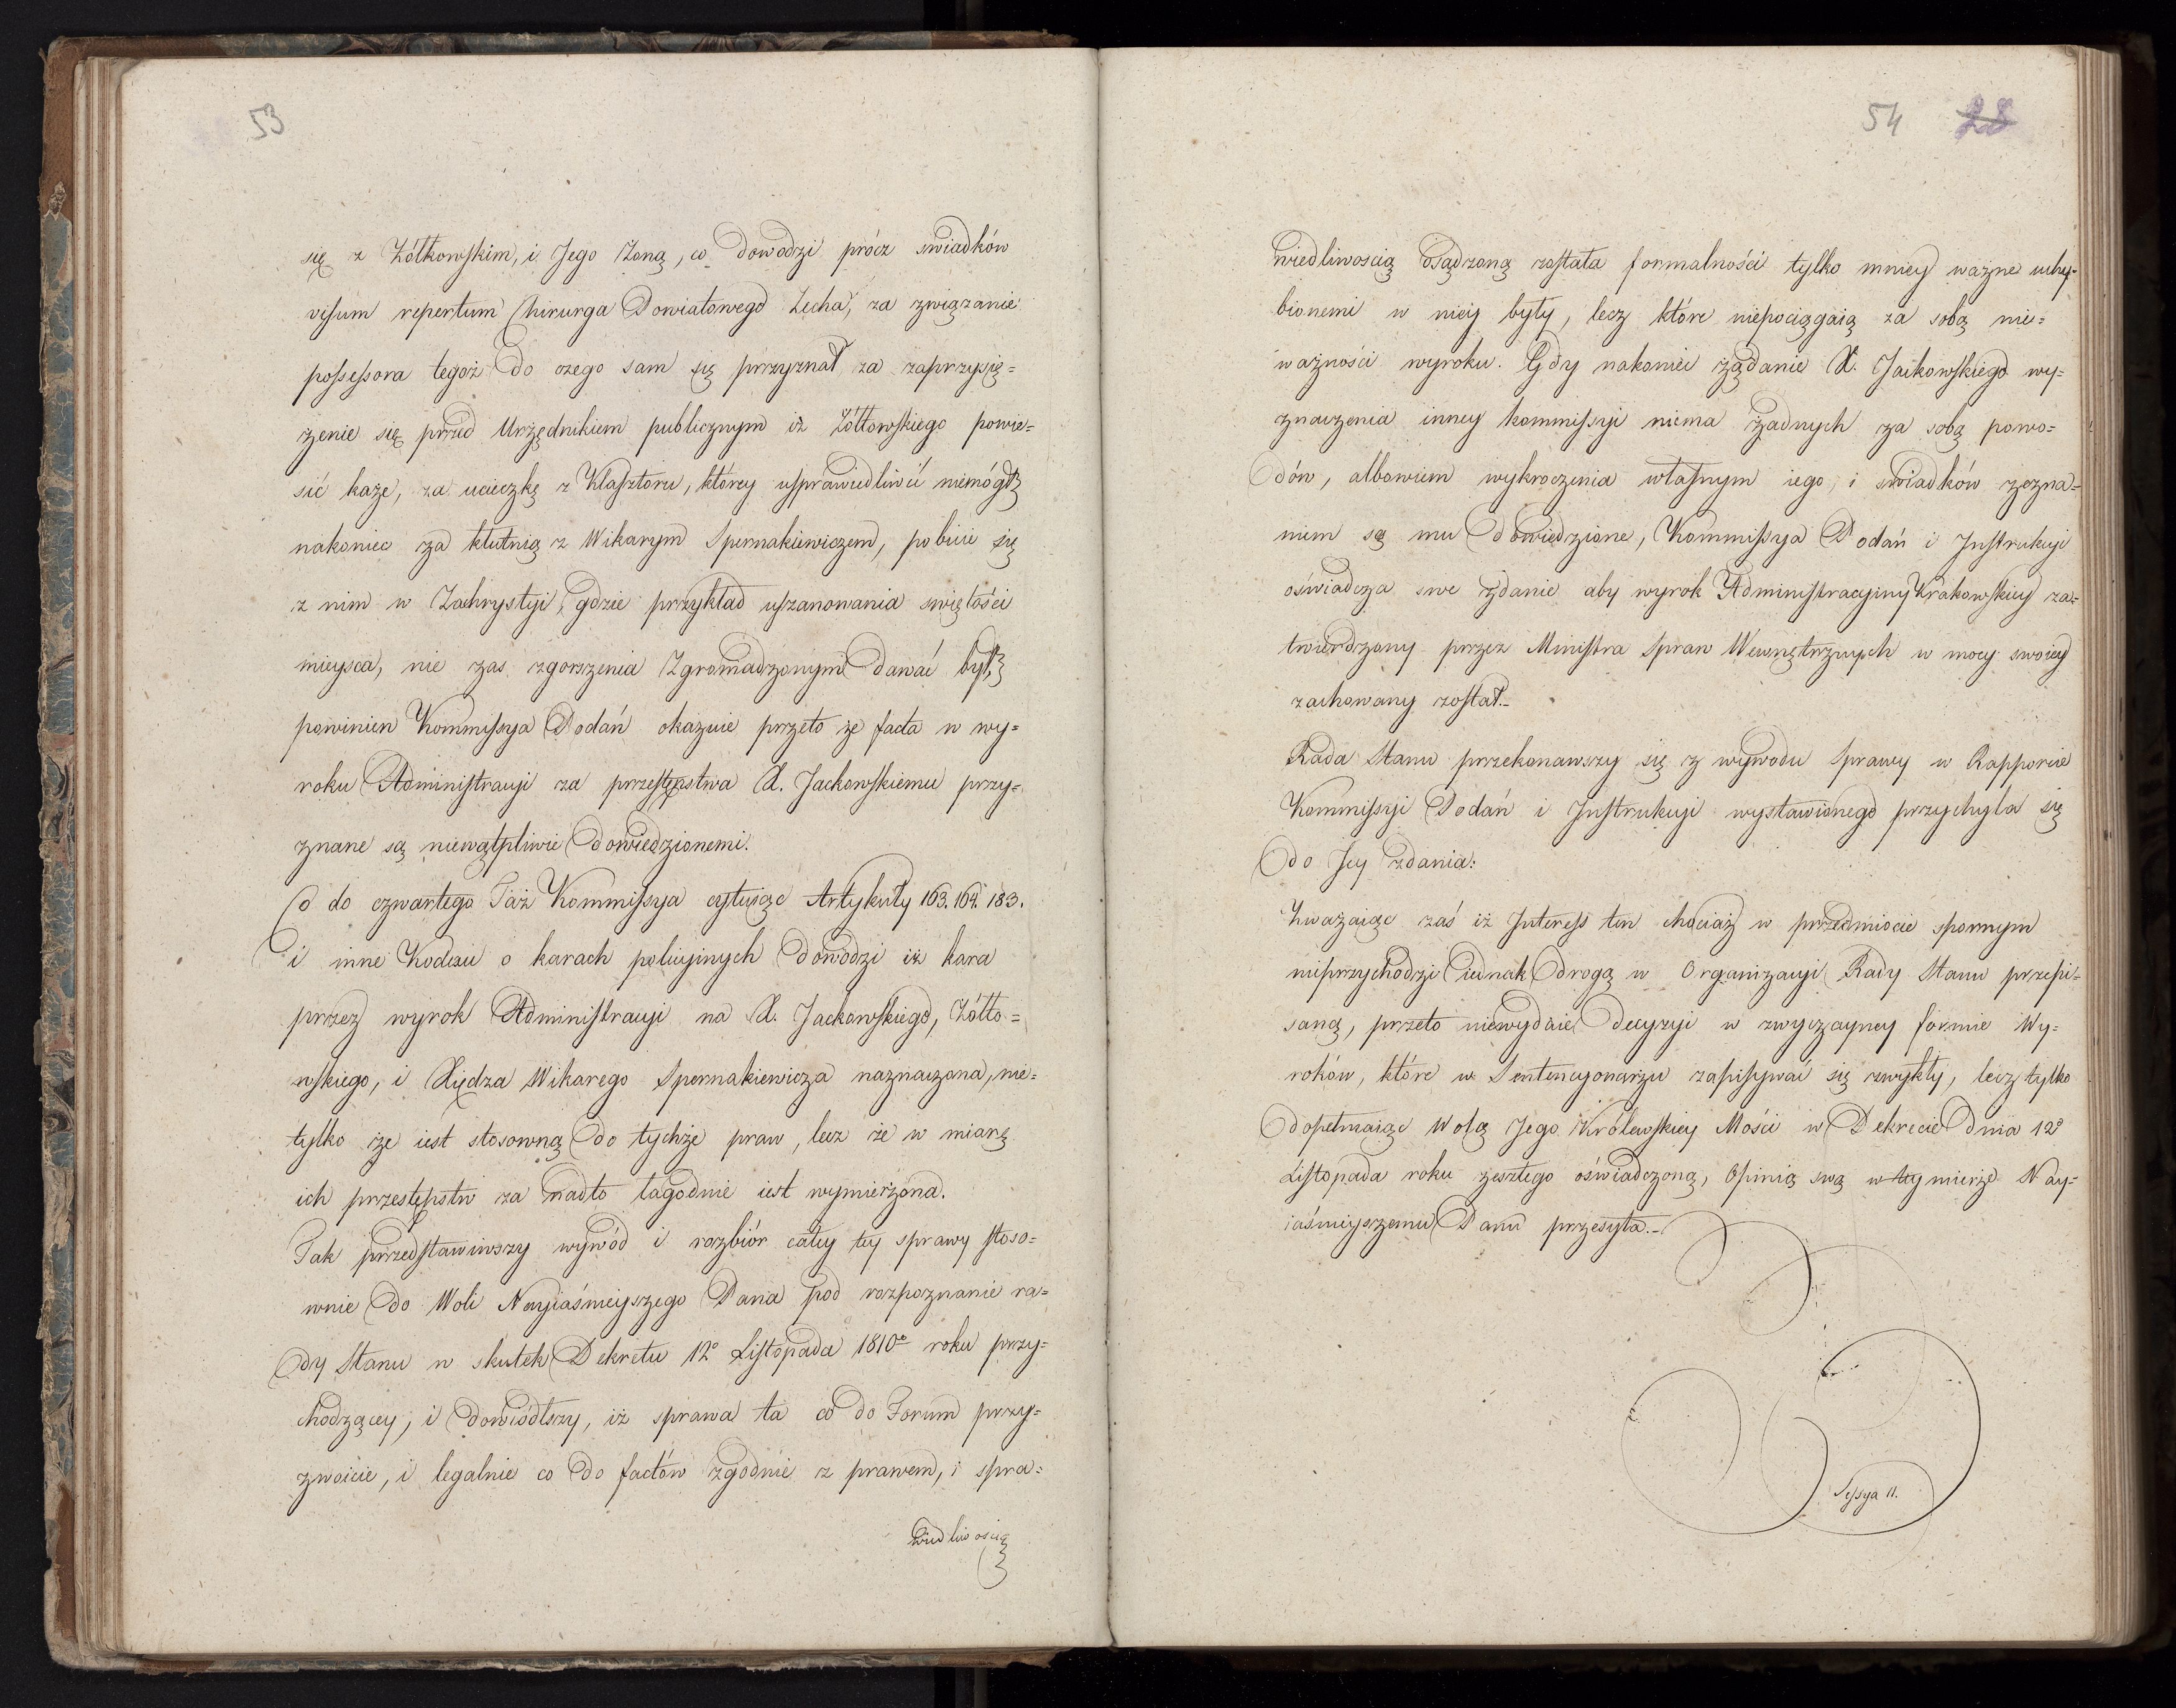 53
się z Żółtkowskim, i Jego Zoną, co dowodzi prócz swiadków
visum repertum Chirurga Powiatowego Lecha, za związanie
possessora tegoż do czego sam się przyznał za zaprzysię=
żenie się przed Urzędnikiem publicznym iż Żółtowskiego powie=
sić każe, za ucieczkę z Klasztoru, którey usprawiedliwić niemógł
nakoniec za kłutnią z Wikarym Spernakiewiczem, pobicie się
z nim w Zachrystyi, gdzie przykład uszanowania swiętości
mieysca, nie zas zgorszenia Zgromadzonym dawać był,
powinien Kommissya Podań okazuie przeto że facta w wy=
roku Administracyi za przestępstwa X. Jackowskiemu przy=
znane są niewątpliwie dowiedzionemi.
Co do czwartego Taż Kommissya cytuiąc Artykuły 163. 164. 183.
i inne Kodexu o karach policyinych dowodzi iż kara
przez wyrok Administracyi na X. Jackowskiego, Żółto=
wskiego, i Xiędza Wikarego Spernakiewicza naznaczona, nie=
tylko że iest stosowną do tychże praw, lecz że w miarę
ich przestępstw za nadto łagodnie iest wymierzona.
Tak przedstawiwszy wywód i rozbiór całey tey sprawy stoso=
wnie do Woli Nayiaśnieyszego Pana pod rozpoznanie ra=
dy Stanu w skutek Dekretu 12º Listopada 1810º roku przy=
chodzącey, i dowiódłszy, iż sprawa ta co do Forum przy=
zwoicie, i legalnie co do factów zgodnie z prawem, i spra=
wiedliwością
54 28
wiedliwoscią osądzoną została formalności tylko mniey ważne uchy=
bionemi w niey były, lecz które niepociągaią za sobą nie=
ważności wyroku. Gdy nakoniec żądanie X. Jackowskiego wy=
znaczenia inney kommissyi niema żadnych za sobą powo=
dów, albowiem wykroczenia własnym iego, i swiadków zezna=
niem są mu dowiedzione, Kommissya Podań i Instrukcyi
oświadcza swe zdanie aby wyrok Administracyiny Krakowskiey za=
twierdzony przez Ministra Spraw Wewnętrznych w mocy swoiey
zachowany został.
Rada Stanu przekonawszy się z wywodu Sprawy w Rapporcie
Kommissyi Podań i Instrukcyi wystawionego przychyla się
do Jey zdania:
Zważaiąc zaś iż Interess ten chociaż w przedmiocie spornym
nieprzychodzi iednak drogą w Organizacyi Rady Stanu przepi=
saną, przeto niewydaie decyzyi w zwyczayney formie Wy=
roków, które w Sentencyonarzu zapisywać się zwykły, lecz tylko
dopełniaiąc Wolą Jego Królewskiey Mości w Dekrecie dnia 12º
Listopada roku zeszłego oświadczoną, Opinią swą w tey mierze Nay=
iaśnieyszemu Panu przesyła.
Sessya 11.